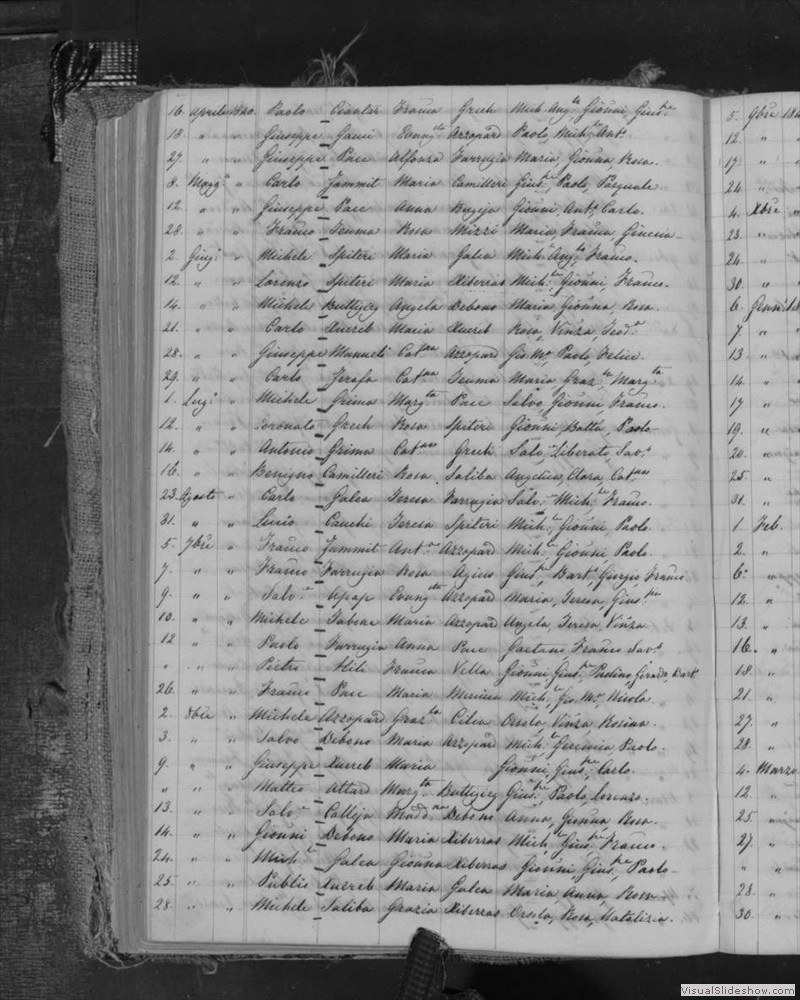 16. Aprile 1820. Paolo Ciantar Franca Grech Mich. Ang.lo Giouni, Gius.e
13 " " Giuseppe Gauci Evang.sta Azzopard Paolo, Mich. Ant.
27. " " Giuseppe Pace Alfonsa Farrugia Maria, Giouna, Rosa.
8. Magg.o " Carlo Zammit Maria Camilleri Gius.e Paolo, Pasquale.
12. " " Giuseppe Pace Anna Bugeja Giouni, Ant. Carlo.
28. " " Franco Teuma Rosa Mizzi Maria, Franca,
2. Giug.o " Michele Spiteri Maria Galea Mich. Ang.lo Franco.
12. " " Lorenzo Spiteri Maria Xiberras Mich.le Giouni, Franco.
14. " " Michele Buttigieg Angela Debono Maria Giouna, Rosa.
21. " " Carlo Xuereb Maria Xuereb Rosa, Vinza, Teod.a
28. " " Giuseppe Cat.na Azzopard Gio M.a Paolo Felice.
29. " " Carlo Zerafa Cat.na Teuma Maria Graz.a Marg.ta
1. Lug.o " Michele Grima Marg.ta Pace Salvo, Giouni, Franco.
12. " " Coronato Grech Rosa Spiteri Giouni Batta, Paolo
14. " " Antonio Grima Cat.na Grech Salv.e Liberato, Sav.o
16. " " Benigno Camilleri Rosa Saliba Angelica, Clara, Cat.na
23. Agosto " Carlo Galea Teresa Farrugia Salv.e Mich.le Franco.
31. " " Lucio Cauchi Teresa Spiteri Mich.le Giouni, Paolo
5. 7bre " Franco Zammit Ant.a Azzopard Mich.le Giouni Paolo
7. " " Franco Farrugia Rosa Agius Gius.e, Bart. Giorgio Franco
9. " " Salv.e Apap Evang.sta Azzopard Maria, Teresa, Gius.a
10. " " Michele Tabone Maria Azzopard Angela, Teresa, Vinza
12 " " Paolo Farrugia Anna Pace Gaetano Franco Sav.o
" " " Pietro Hili Franca Vella Giouni, Gius.e Paolino, Gerardo, Bart.
26. " " Franco Pace Maria Mich.le Gio M.a Nicola.
2. 8bre " Michele Azzopard Graz.a Cilea Orsola, Vinza, Rosina.
3. " " Salvo Debono Maria Azzopard Mich.le Geremia Paolo.
9. " " Giuseppe Xuereb Maria Giouni, Gius.e Carlo.
" " " Matteo Attard Marg.ta Buttigieg Gius.e, Paolo, Lorenzo.
13. " " Salv.e Calleja Madd.na Debono Anna, Giouna Rosa.
14. " " Giouni Debono Maria Xiberras Mich.le Gius.e Franco.
24. " " Mich.le Galea Giouna Xiberras Giouni, Gius.e Paolo
25. " " Publio Xuereb Maria Galea Maria, Anna, Rosa
28. " " Michele Saliba Grazia Xiberras Orsola, Rosa, Natalizia.
5. 9bre 18
12. " "
17 " "
24 " "
4. Xbre "
23. " "
24. "
30. " "
6. Genn.
7 "
13 "
14. "
17 "
19. "
20. "
25. "
31. "
1. Feb.
2. "
6. "
12. "
13. "
16. "
18. "
21. "
27. "
28. "
4. Marzo
12. "
25 "
27. "
" "
28. "
30. "
VisualSlideshow.com